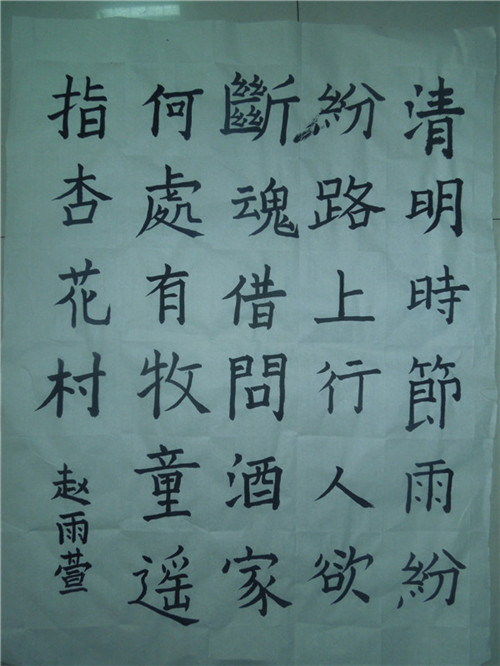 清明時節雨紛
紛路上行人欲
斷魂借問酒家
何處有牧童遥
指杏花村
赵雨萱